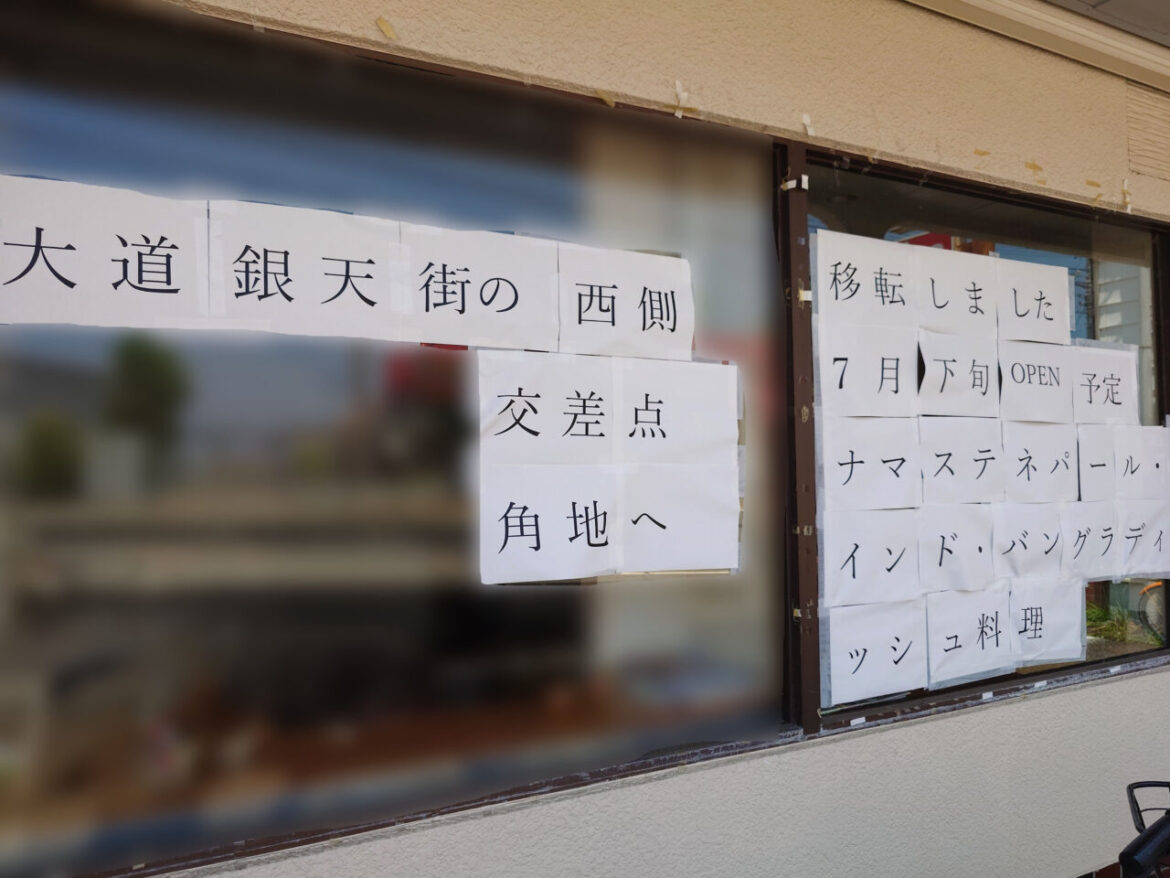 大道銀天街の西側
交差点
角地へ
移転しました
7月下旬OPEN予定
ナマステネパール・
インド・バングラディ
ッシュ料理